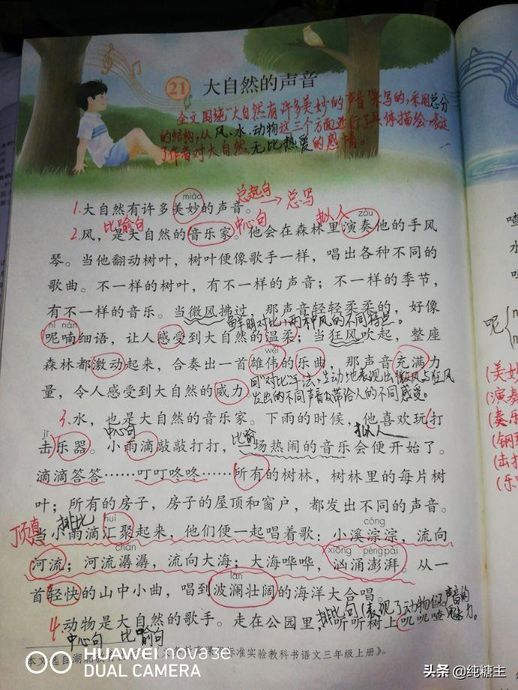 21 大自然的声音
全文围绕"大自然有许多美妙的声音"来写的,采用总分
的结构,从风、水、动物这三个方面进行了具体描绘,表达
了作者对大自然无比热爱的感情。
总起句 → 总写
miào
1.大自然有许多美妙的声音。
比喻句 中心句 拟人
zòu
2.风,是大自然的音乐家。他会在森林里演奏他的手风
琴。当他翻动树叶,树叶便像歌手一样,唱出各种不同的
歌曲。不一样的树叶,有不一样的声音;不一样的季节,
有不一样的音乐。当微风拂过,那声音轻轻柔柔的,好像
鲜明对比,两种风的不同特点。
ní nán
呢喃细语,让人感受到大自然的温柔;当狂风吹起,整座
wěi
森林都激动起来,合奏出一首雄伟的乐曲,那声音充满力
量,令人感受到大自然的威力。
3.水,也是大自然的音乐家。下雨的时候,他喜欢玩打
jī
中心句 比喻 拟人
击乐器。小雨滴敲敲打打,一场热闹的音乐会便开始了。
滴滴答答……叮叮咚咚……所有的树林,树林里的每片树
叶;所有的房子,房子的屋顶和窗户,都发出不同的声音。
顶真 排比
huì cóng
当小雨滴汇聚起来,他们便一起唱着歌:小溪淙淙,流向
chán xiōng péng pài
河流;河流潺潺,流向大海;大海哗哗,汹涌澎湃。从一
lán
首轻快的山中小曲,唱到波澜壮阔的海洋大合唱。
4.动物是大自然的歌手。走在公园里,听听树上叽叽喳
中心句 比喻句
HUAWEI nova 5e
DUAL CAMERA
标准实验教科书语文三年级上册》。
头条 @纯糖主